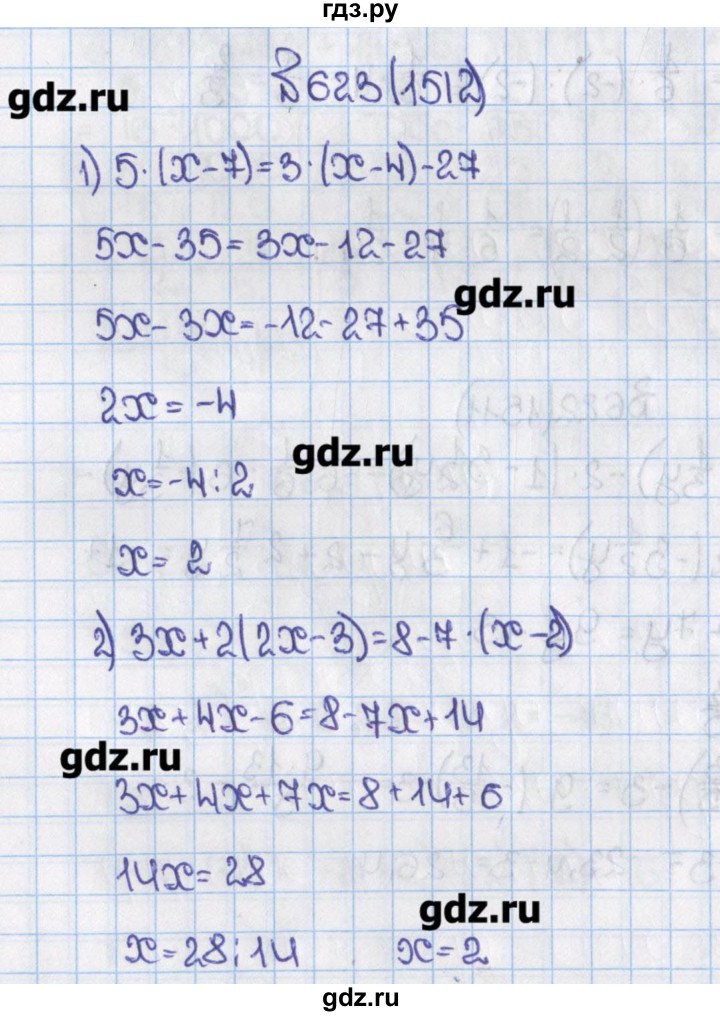 гдз.ру
В 623 (1512)
gdz.ru
1) 5·(x-7)=3·(x-4)-27
5x-35=3x-12-27
gdz.ru
5x-3x=-12-27+35
2x=-4
gdz.ru
x=-4:2
x= 2
2) 3x+2(2x-3)=8-7·(x-2)
3x+4x-6=8-7x+14
gdz.ru
3x+4x+7x=8+14+6
14x=28
gdz.ru
x=28:14 x=2
gdz.ru